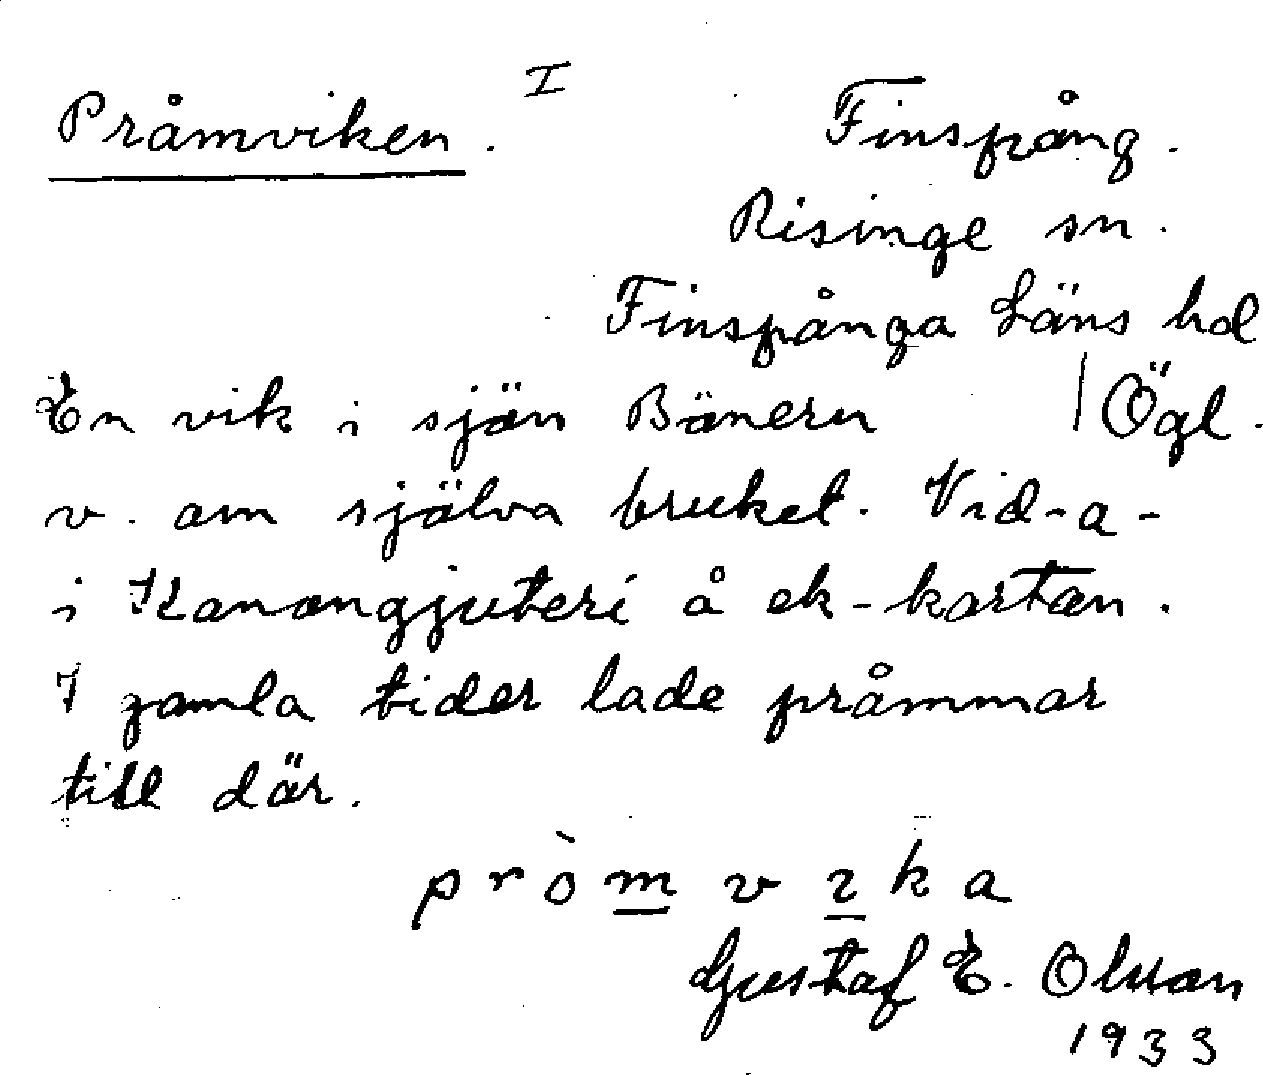 Pråmviken. I
Finspång.
Risinge sn.
Finspånga Läns hd
Ögl.
En vik i sjön Bönern
v. om själva bruket. Vid -a-
i Kanongjuteri å ek-kartan.
I gamla tider lade pråmmar
till där.
pròmvıka
Gustaf E. Olsson
1933